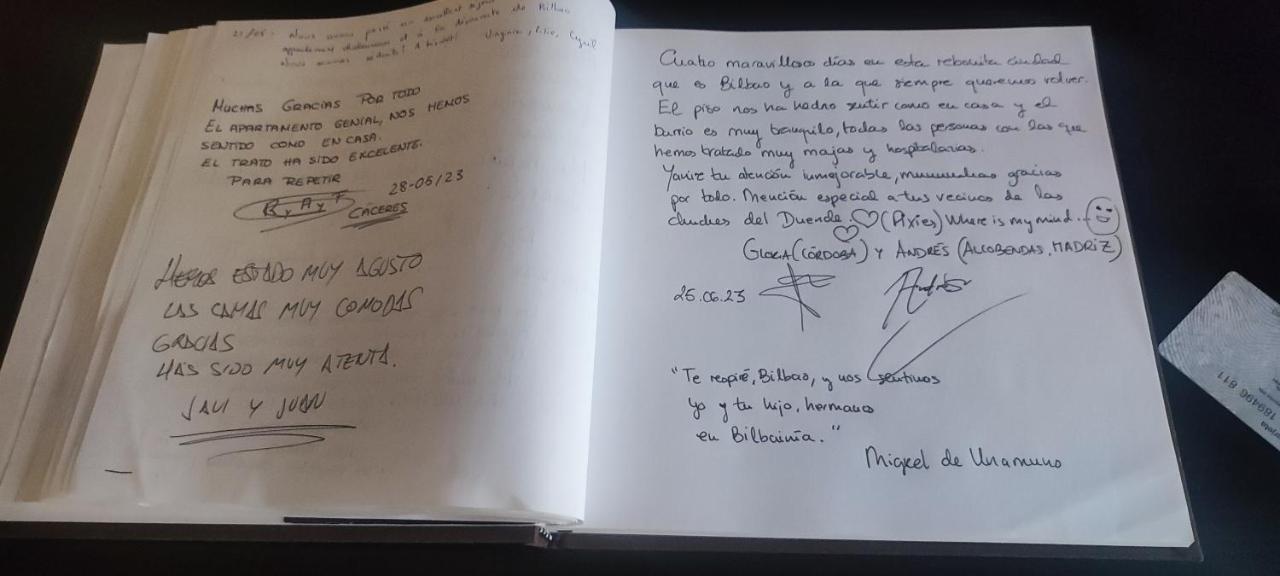 Nous avons passé un excellent
Bilbao
MUCHAS GRACIAS POR TODO
EL APARTAMENTO GENIAL, NOS HEMOS
SENTIDO COMO EN CASA.
EL TRATO HA SIDO EXCELENTE.
PARA REPETIR
28-05/23
B y A y F
CÁCERES
HEMOS ESTADO MUY AGUSTO
LAS CAMAS MUY COMODAS
GRACIAS
HAS SIDO MUY ATENTA.
Y JUAN
Cuatro maravillosos días en esta rebonita ciudad
que es Bilbao y a la que siempre queremos volver.
El piso nos ha hecho sentir como en casa y el
barrio es muy tranquilo, todas las personas con las que
hemos tratado muy majas y hospitalarias.
tu atención inmejorable, muuuuchas gracias
por todo. Mención especial a tus vecinos de las
chuches del Duende. (Pixies) Where is my mind..
GLORIA (CÓRDOBA) Y ANDRÉS (ALCOBENDAS, MADRIZ)
25.06.23
Andrés
"Te respiré, Bilbao, y nos sentimos
yo y tu hijo, hermano
en Bilbainía."
Miguel de Unamuno
189496 811